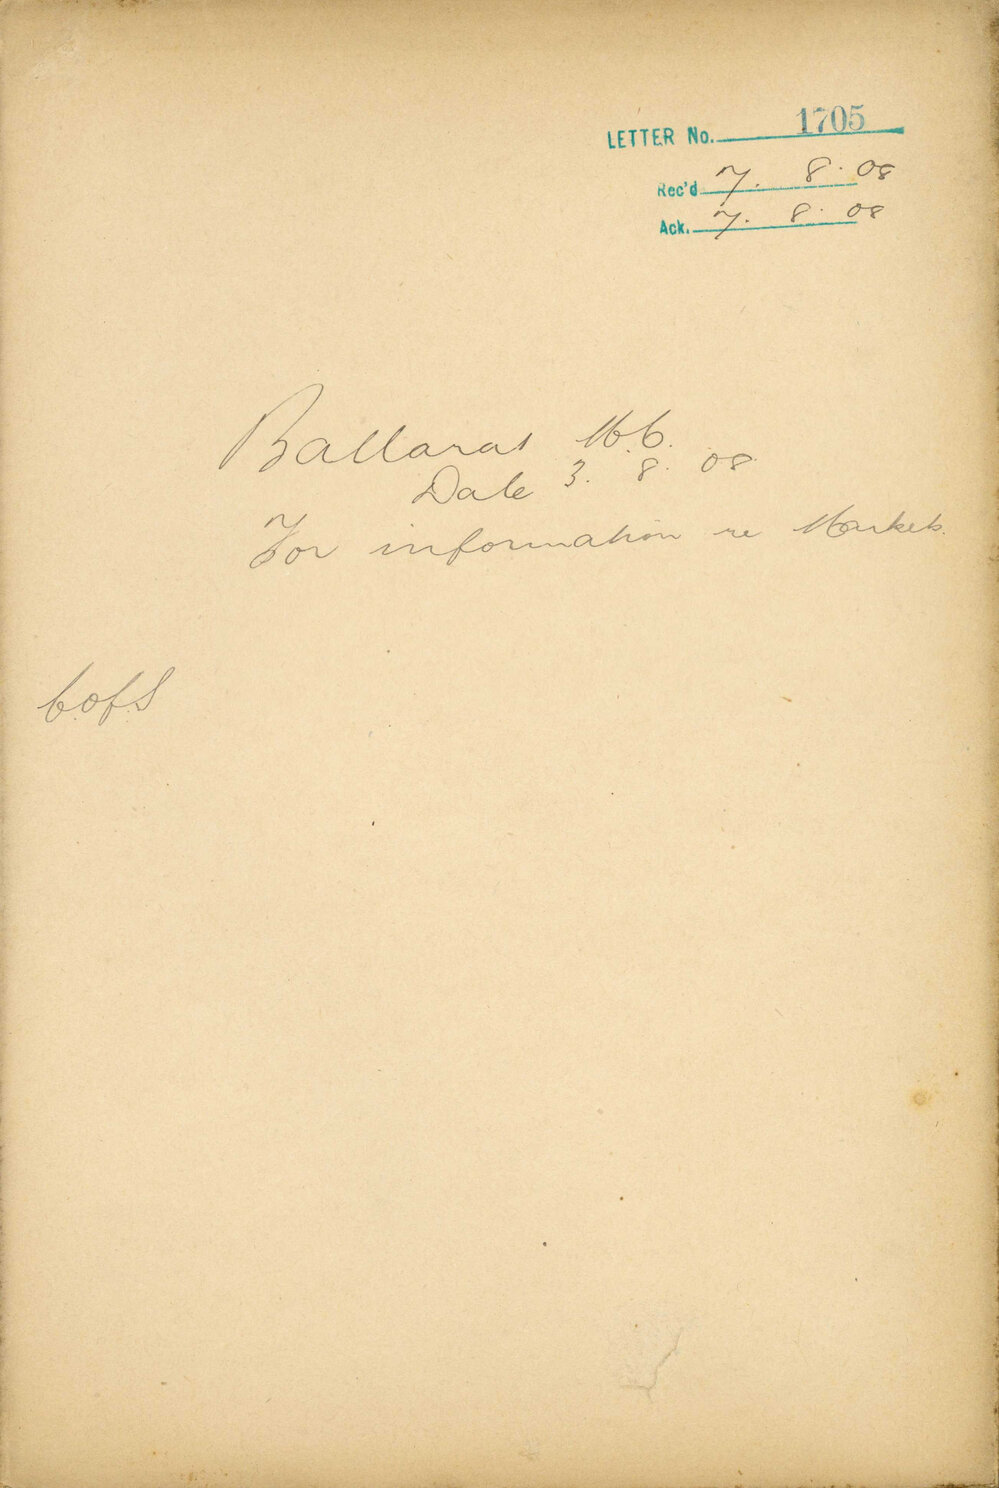 LETTER No. 1705
Rec'd 7. 8. 08
Ack. 7. 8. 08
Ballarat M.C.
Date 3. 8. 08
For information re Markets.
C. of S